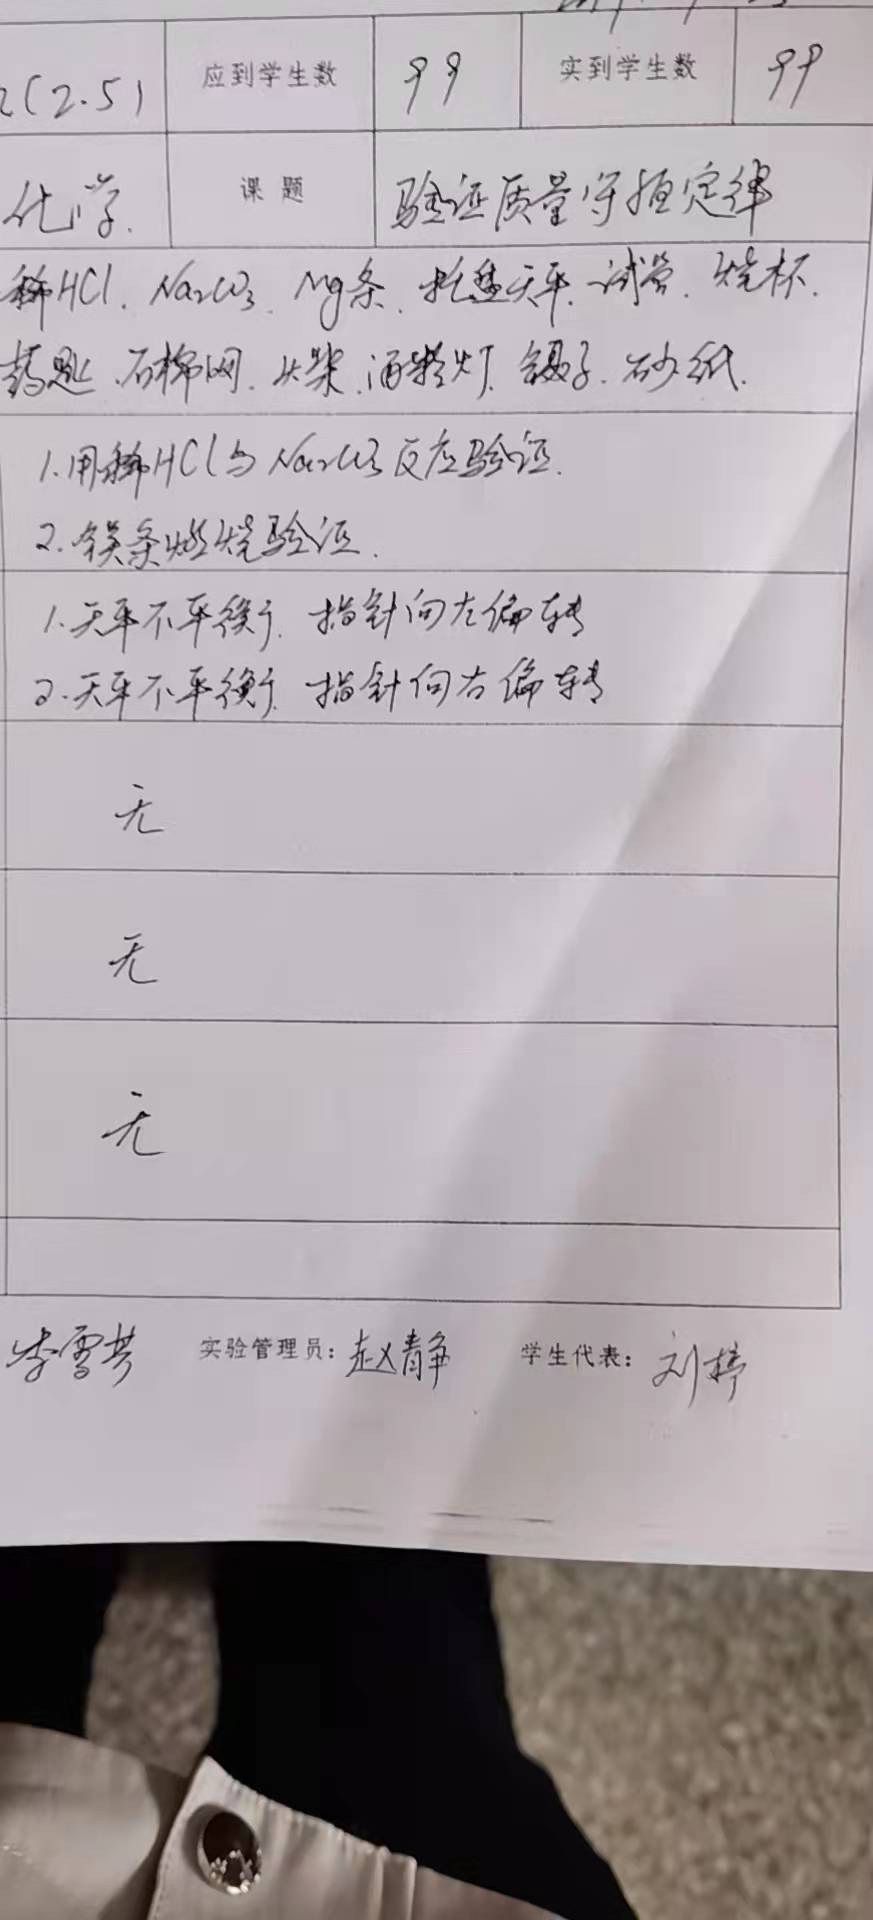 2(2.5) 应到学生数 99 实到学生数 99
化学. 课题 验证质量守恒定律
稀HCl. Na2CO3. Mg条. 托盘天平. 试管. 烧杯.
药匙. 石棉网. 火柴. 酒精灯. 镊子. 砂纸.
1.用稀HCl与Na2CO3反应验证.
2.镁条燃烧验证.
1.天平不平衡. 指针向左偏转
2.天平不平衡. 指针向右偏转
无
无
无
李雪芳 实验管理员:赵静 学生代表:刘婷